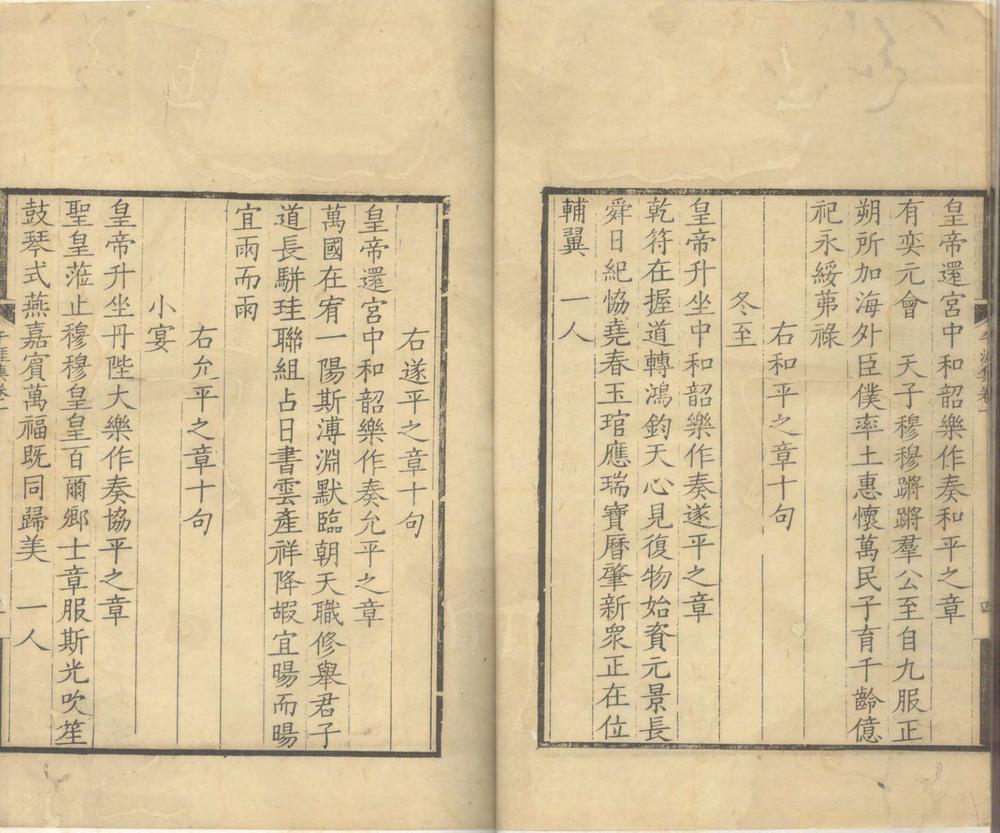 皇帝還宮中和韶樂作奏和平之章
有奕元會　天子穆穆蹡蹡羣公至自九服正
朔所加海外臣僕率土惠懷萬民子育千齡億
祀永綏茀祿
右和平之章十句
冬至
皇帝升坐中和韶樂作奏遂平之章
乾符在握道轉鴻鈞天心見復物始資元景長
舜日紀恊堯春玉琯應瑞寶曆肇新衆正在位
輔翼　一人
右遂平之章十句
皇帝還宮中和韶樂作奏允平之章
萬國在宥一陽斯溥淵默臨朝天職修舉君子
道長駢珪聯組占日書雲產祥降嘏宜暘而暘
宜雨而雨
右允平之章十句
小宴
皇帝升坐丹陛大樂作奏協平之章
聖皇蒞止穆穆皇皇百爾鄉士章服斯光吹笙
鼓琴式燕嘉賓萬福既同歸美　一人